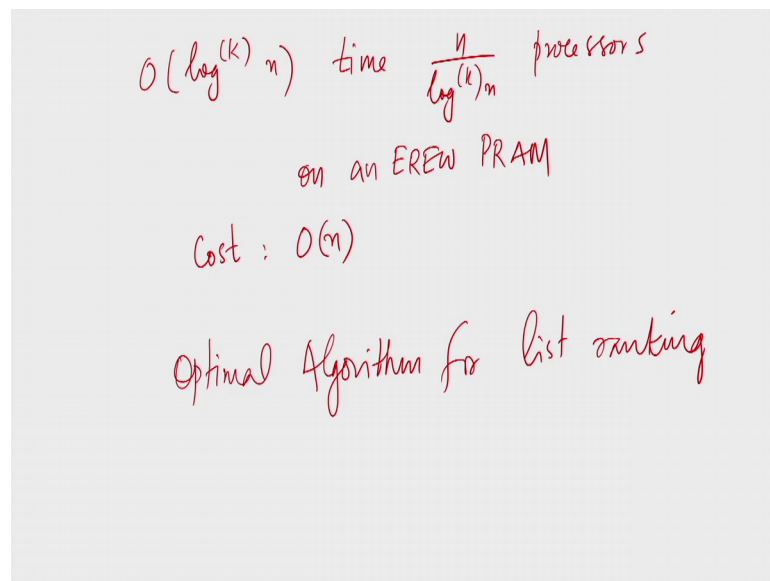 O(log^(k) n) time n/log^(k) n processors
on an EREW PRAM
Cost : O(n)
Optimal Algorithm for list ranking